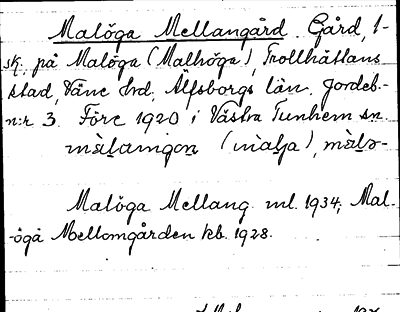 Malöga Mellangård. Gård, 1-
sk. på Malöga (Malhöga), Trollhättans
stad, Väne hd, Älfsborgs län. Jordeb.-
n:r 3. Före 1920 i Västra Tunhem sn.
Malöga Mellang. ml. 1934; Mal-
-öga Mellomgården kb. 1928.